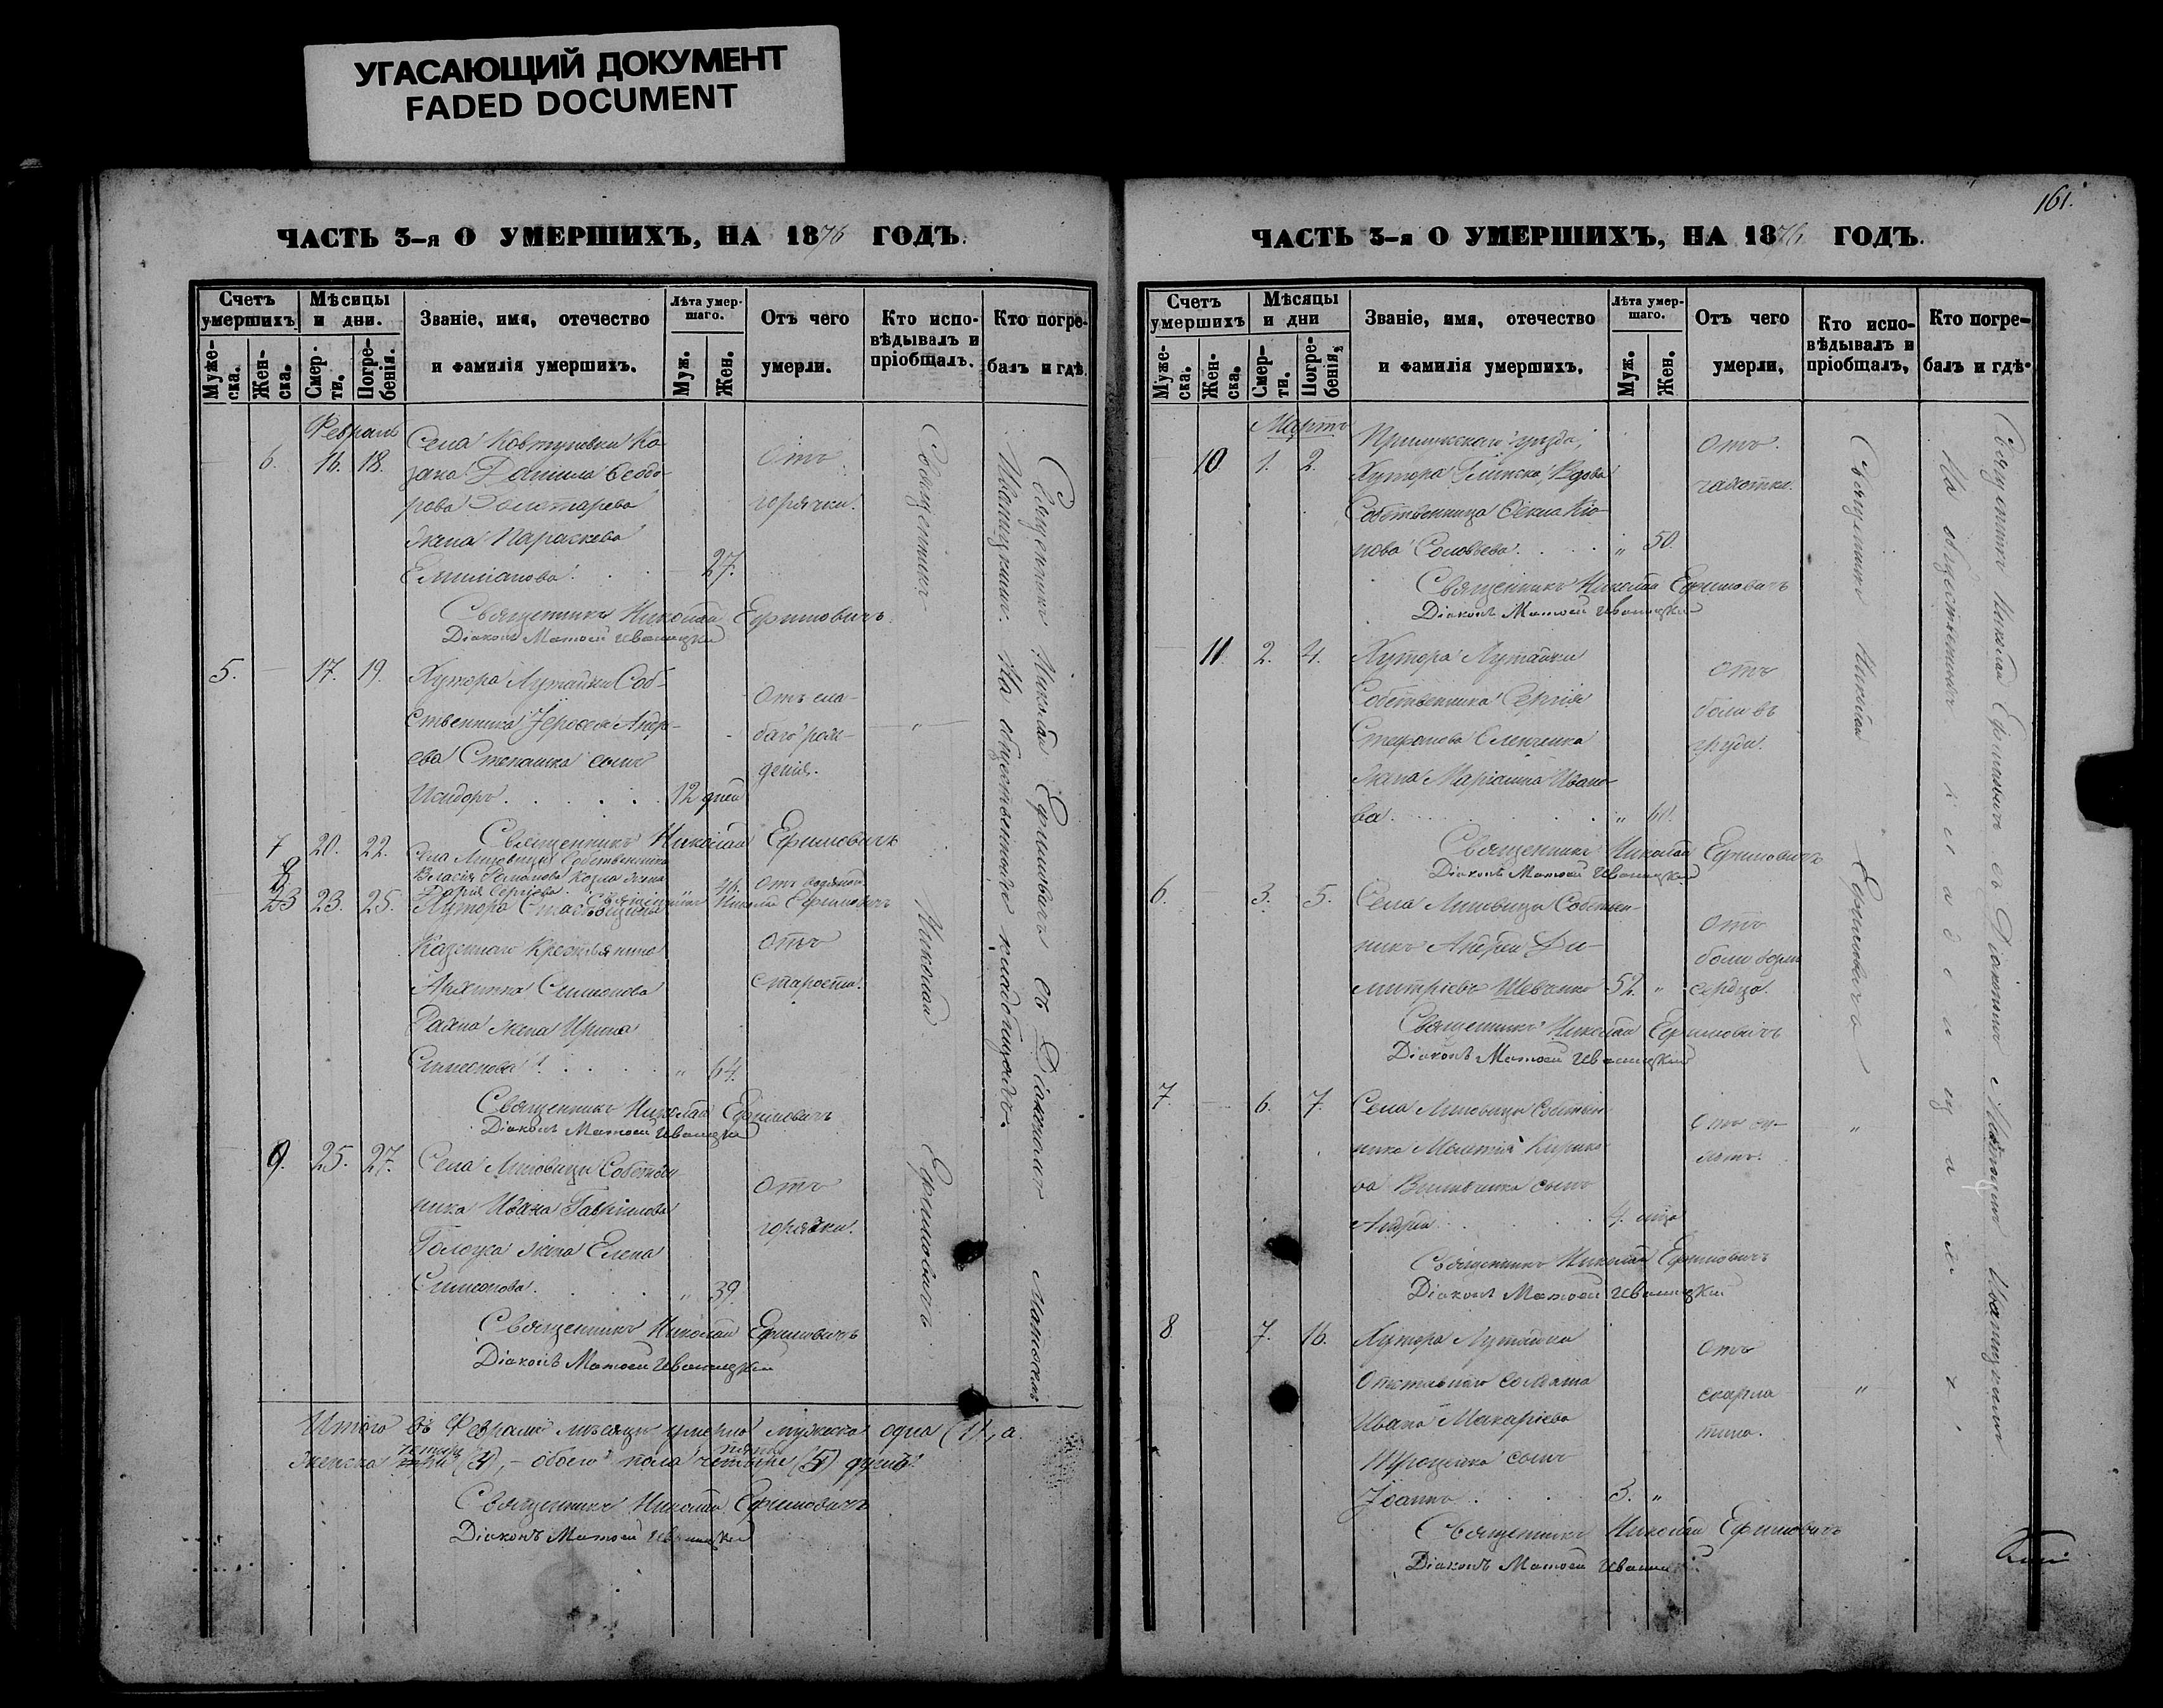 УГАСАЮЩИЙ ДОКУМЕНТ
FADED DOCUMENT
ЧАСТЬ 3-я О УМЕРШИХЪ, НА 1876 ГОДЪ.
Счетъ умершихъ
Муже-ска.
Жен-ска.
Мѣсяцы и дни.
Смерти.
Погребенія.
Званіе, имя, отечество
и фамилія умершихъ.
Лѣта умершаго.
Муж.
Жен.
Отъ чего
умерли.
Кто исповѣдывалъ и пріобщалъ.
Кто погребалъ и гдѣ.
Февраль
6. 16. 18. Села Ковтуновки Ко-
зака Даніила Ѳеодо-
рова
жена Параскева
Емиліанова. 27.
Отъ
горячки.
Священникъ Николай Ефимовичъ
Діаконъ Матѳей Иваницкій
5. — 17. 19. Хутора Лутайки Соб-
ственника Іероѳея Андре-
ева Степанка сынъ
Исидоръ. 12 дней
Отъ сла-
баго рож-
денія.
Священникъ Николай Ефимовичъ
7 20. 22. Села Линовицы Собственника
Власія Романова Козла жена
Сергіева 46. Отъ водяной
Священникъ Николай Ефимовичъ
8 23. 25. Хутора
Казеннаго Крестьянина
Симеонова
жена Ирина
Симеонова. „ 64.
Отъ
старости.
Священникъ Николай Ефимовичъ
Діаконъ Матѳей Иваницкій
9. 25. 27. Села Линовицы Собствен-
ника Ивана Гавриилова
жена Елена
Симеонова. „ 39.
Отъ
горячки.
Священникъ Николай Ефимовичъ
Діаконъ Матѳей Иваницкій
Итого въ Февралѣ мѣсяцѣ умерло мужеска одна (1), а
женска четыре (4), — обоего пола пять (5) душъ.
Священникъ Николай Ефимовичъ
Діаконъ Матѳей Иваницкій
Священникъ Николай Ефимовичъ
Священникъ Николай Ефимовичъ съ Діакономъ Матѳеемъ
Иваницкимъ. На общественномъ кладбищѣ.
161.
ЧАСТЬ 3-я О УМЕРШИХЪ, НА 1876 ГОДЪ.
Счетъ умершихъ
Муже-ска.
Жен-ска.
Мѣсяцы и дни
Смерти.
Погребенія.
Званіе, имя, отечество
и фамилія умершихъ.
Лѣта умершаго.
Муж.
Жен.
Отъ чего
умерли,
Кто исповѣдывалъ и пріобщалъ,
Кто погребалъ и гдѣ.
Мартъ
10. 1. 2. Прилукскаго уѣзда,
Хутора Вдова
Собственница Ѳекла
Соловьева. „ 50.
Отъ
чахотки.
Священникъ Николай Ефимовичъ
Діаконъ Матѳей Иваницкій
11. 2. 4. Хутора Лутайки
Собственника Сергія
Стефанова
жена Маріанна Ивано-
ва. „ 60.
Отъ
боли въ
груди.
Священникъ Николай Ефимовичъ
Діаконъ Матѳей Иваницкій
6. 3. 5. Села Линовицы Собствен-
никъ Андрей Ди-
митріевъ Шевченко 52. „
Отъ
боли
сердца.
Священникъ Николай Ефимовичъ
Діаконъ Матѳей Иваницкій
7. — 6. 7. Села Линовицы Собствен-
ника
сынъ
Андрей 4.
Священникъ Николай Ефимовичъ
Діаконъ Матѳей Иваницкій
8 7. 16. Хутора Лутайки
Отставнаго Солдата
Ивана Макаріева
Троценка сынъ
Іоаннъ. 3. „
Отъ
скарла
тина.
Священникъ Николай Ефимовичъ
Діаконъ Матѳей
Священникъ Николай Ефимовичъ
Священникъ Николай Ефимовичъ съ Діакономъ Матѳеемъ Иваницкимъ
На общественномъ кладбищѣ.